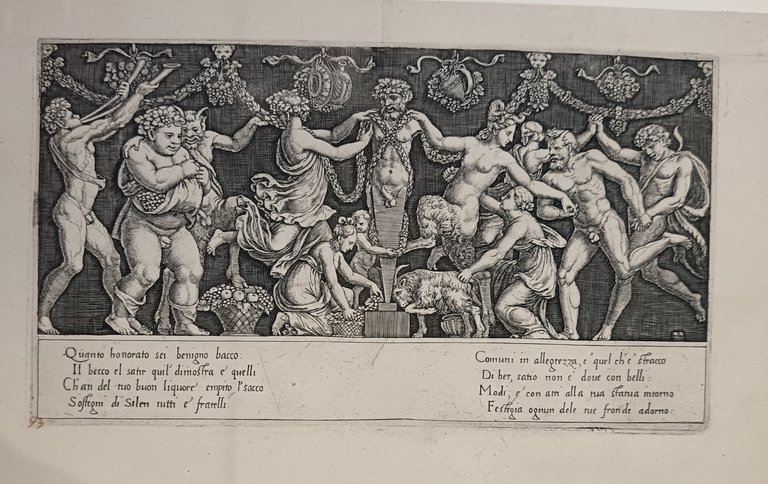 Quanto honorato sei benigno bacco:
Il becco el satir quil dimostra e quelli
Ch'an del tuo buon liquore empito l'sacco
Sostegni di Silen tutti e fratelli:
Comuni in allegrezza, e quel ch'e stracco
Di ber, satio non e dove con belli:
Modi, e con atti alla tua statua intorno
Festegia ognun dele tue fronde adorno:
93